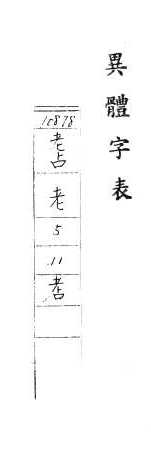 異體字表
10878
老
5
11